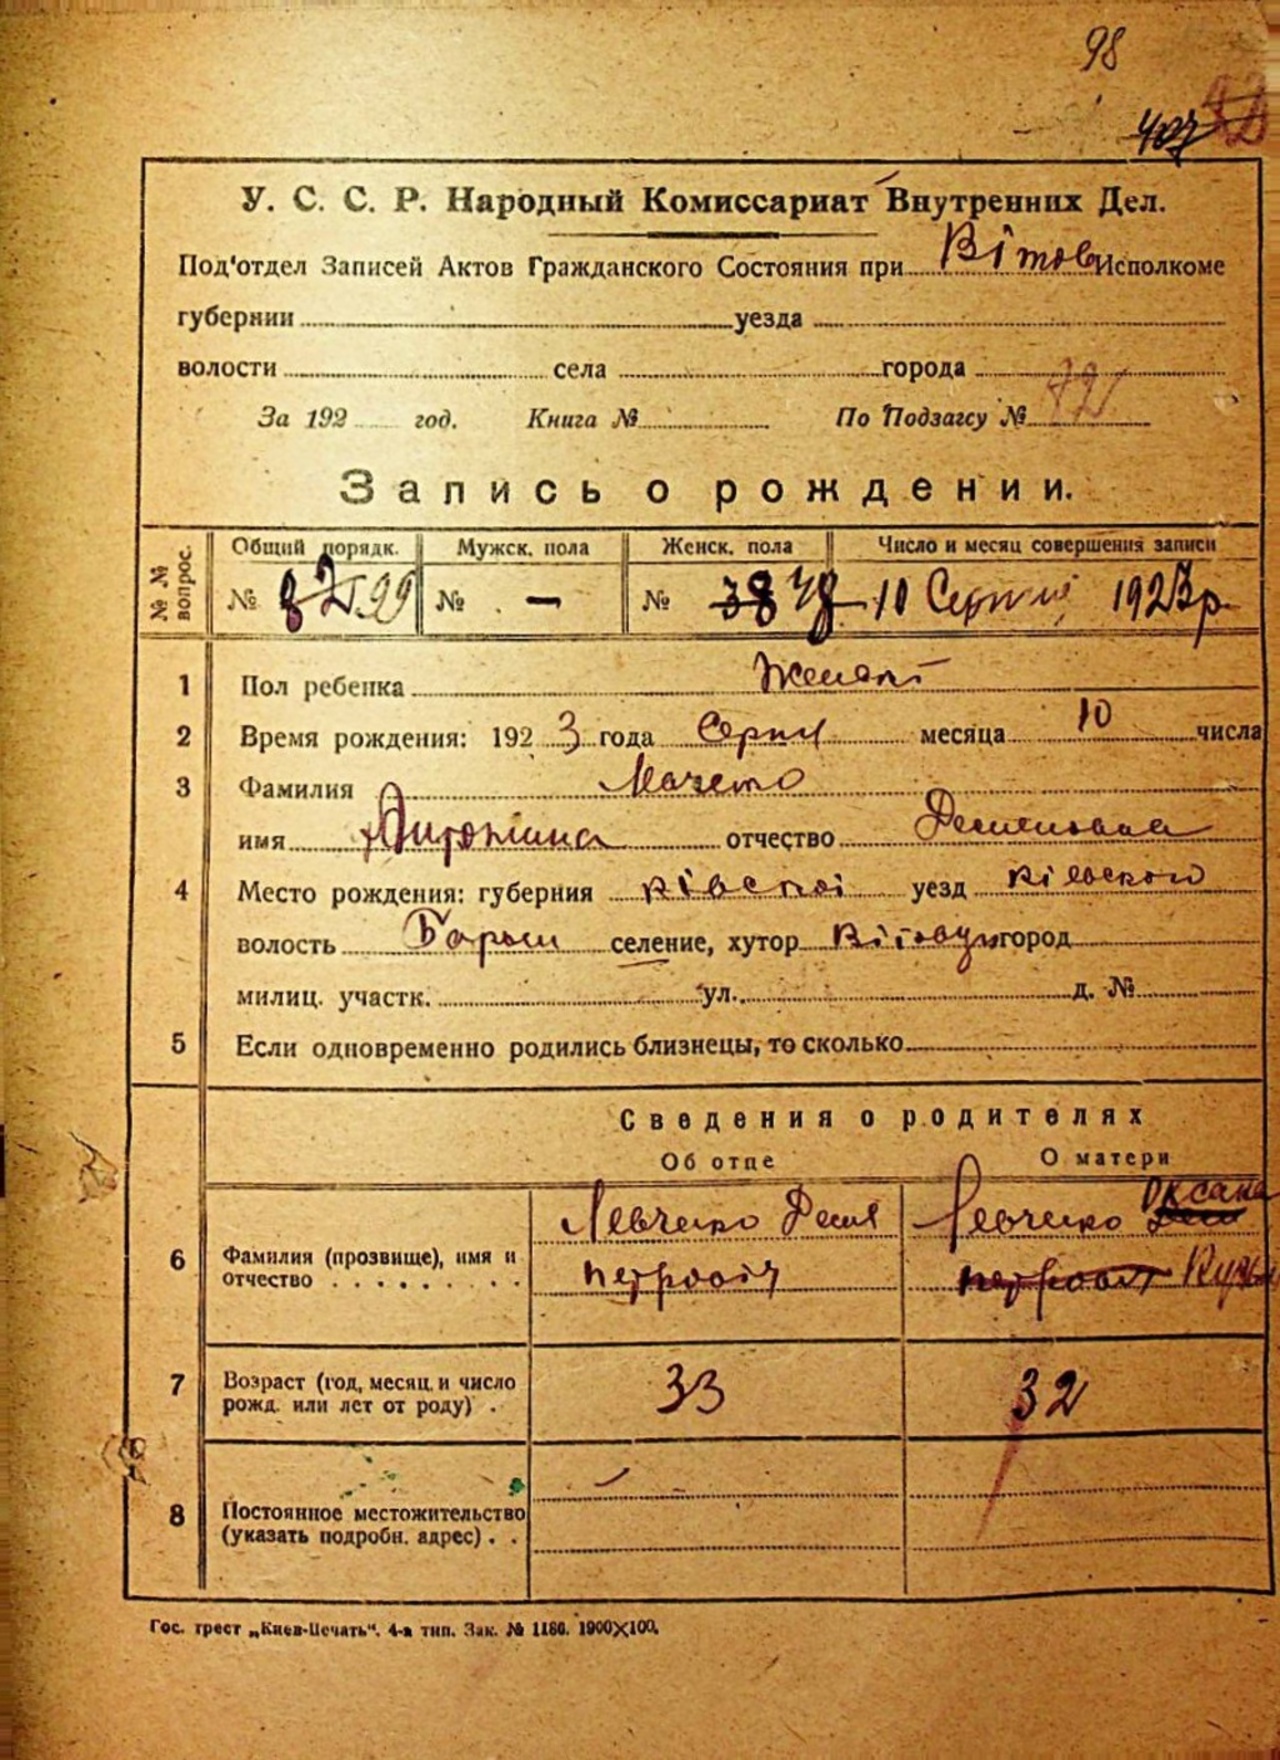 98
У. С. С. Р. Народный Комиссариат Внутренних Дел.
Под'отдел Записей Актов Гражданского Состояния при Вітов Исполкоме
губернии уезда
волости села города
За 192 год. Книга № По Подзагсу № 72
Запись о рождении.
№ № вопрос.
Общий порядк. Мужск. пола Женск. пола Число и месяц совершения записи
№ 82 99 № — № 38 10 Серпня 1923 р.
1 Пол ребенка
2 Время рождения: 192 3 года Серпня месяца 10 числа
3 Фамилия
имя Антонина отчество
4 Место рождения: губерния уезд Київского
волость Барыш селение, хутор город
милиц. участк. ул. д. №
5 Если одновременно родились близнецы, то сколько
Сведения о родителях
Об отце О матери
6 Фамилия (прозвище), имя и отчество
Левченко
Петрович
Левченко Оксана
Петрович
7 Возраст (год, месяц и число рожд. или лет от роду) . 33 32
8 Постоянное местожительство (указать подробн. адрес) . .
Гос. трест „Киев-Печать“. 4-я тип. Зак. № 1180. 1900×100.